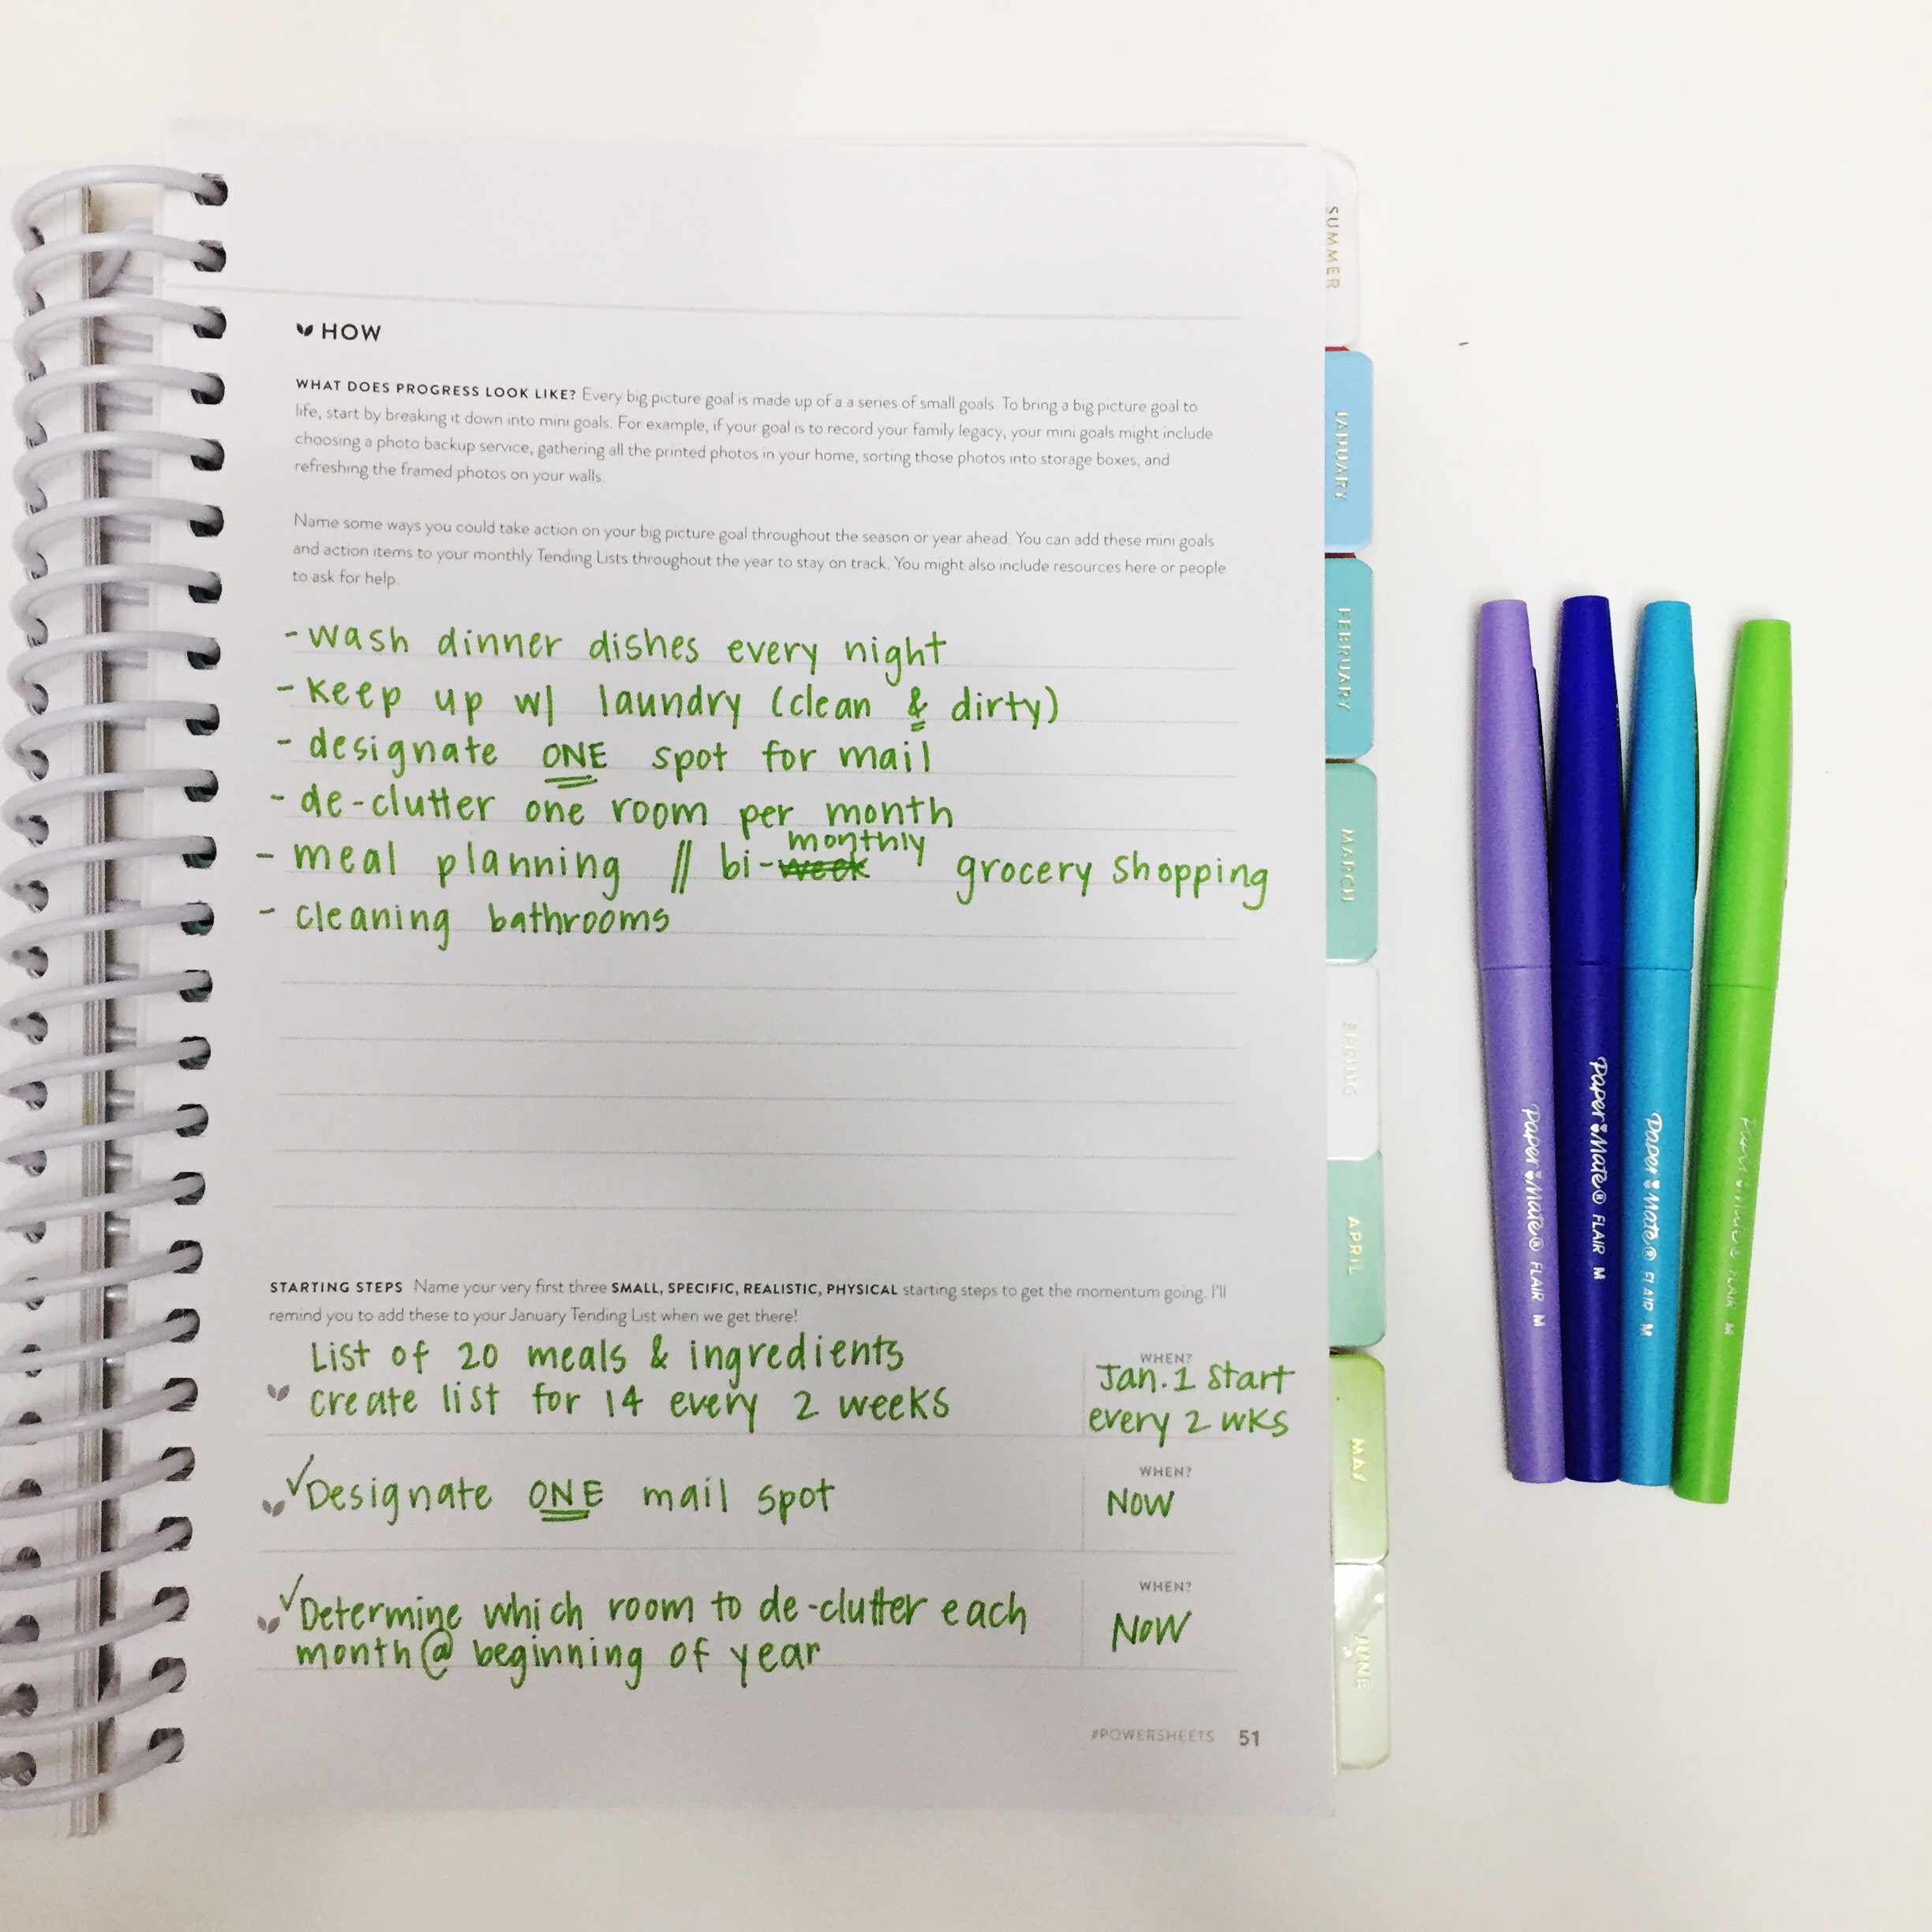 HOW
WHAT DOES PROGRESS LOOK LIKE? Every big picture goal is made up of a a series of small goals. To bring a big picture goal to
life, start by breaking it down into mini goals. For example, if your goal is to record your family legacy, your mini goals might include
choosing a photo backup service, gathering all the printed photos in your home, sorting those photos into storage boxes, and
refreshing the framed photos on your walls.
Name some ways you could take action on your big picture goal throughout the season or year ahead. You can add these mini goals
and action items to your monthly Tending Lists throughout the year to stay on track. You might also include resources here or people
to ask for help.
- wash dinner dishes every night
- keep up w/ laundry (clean & dirty)
- designate ONE spot for mail
- de-clutter one room per month
- meal planning // bi-week monthly grocery shopping
- cleaning bathrooms
STARTING STEPS Name your very first three SMALL, SPECIFIC, REALISTIC, PHYSICAL starting steps to get the momentum going. I'll
remind you to add these to your January Tending List when we get there!
List of 20 meals & ingredients
create list for 14 every 2 weeks
WHEN?
Jan. 1 start
every 2 wks
✓Designate ONE mail spot
WHEN?
NOW
✓Determine which room to de-clutter each
month @ beginning of year
WHEN?
NOW
#POWERSHEETS 51
SUMMER
JANUARY
FEBRUARY
MARCH
SPRING
APRIL
MAY
JUNE
Paper Mate® FLAIR M
Paper Mate® FLAIR M
Paper Mate® FLAIR M
Paper Mate® FLAIR M